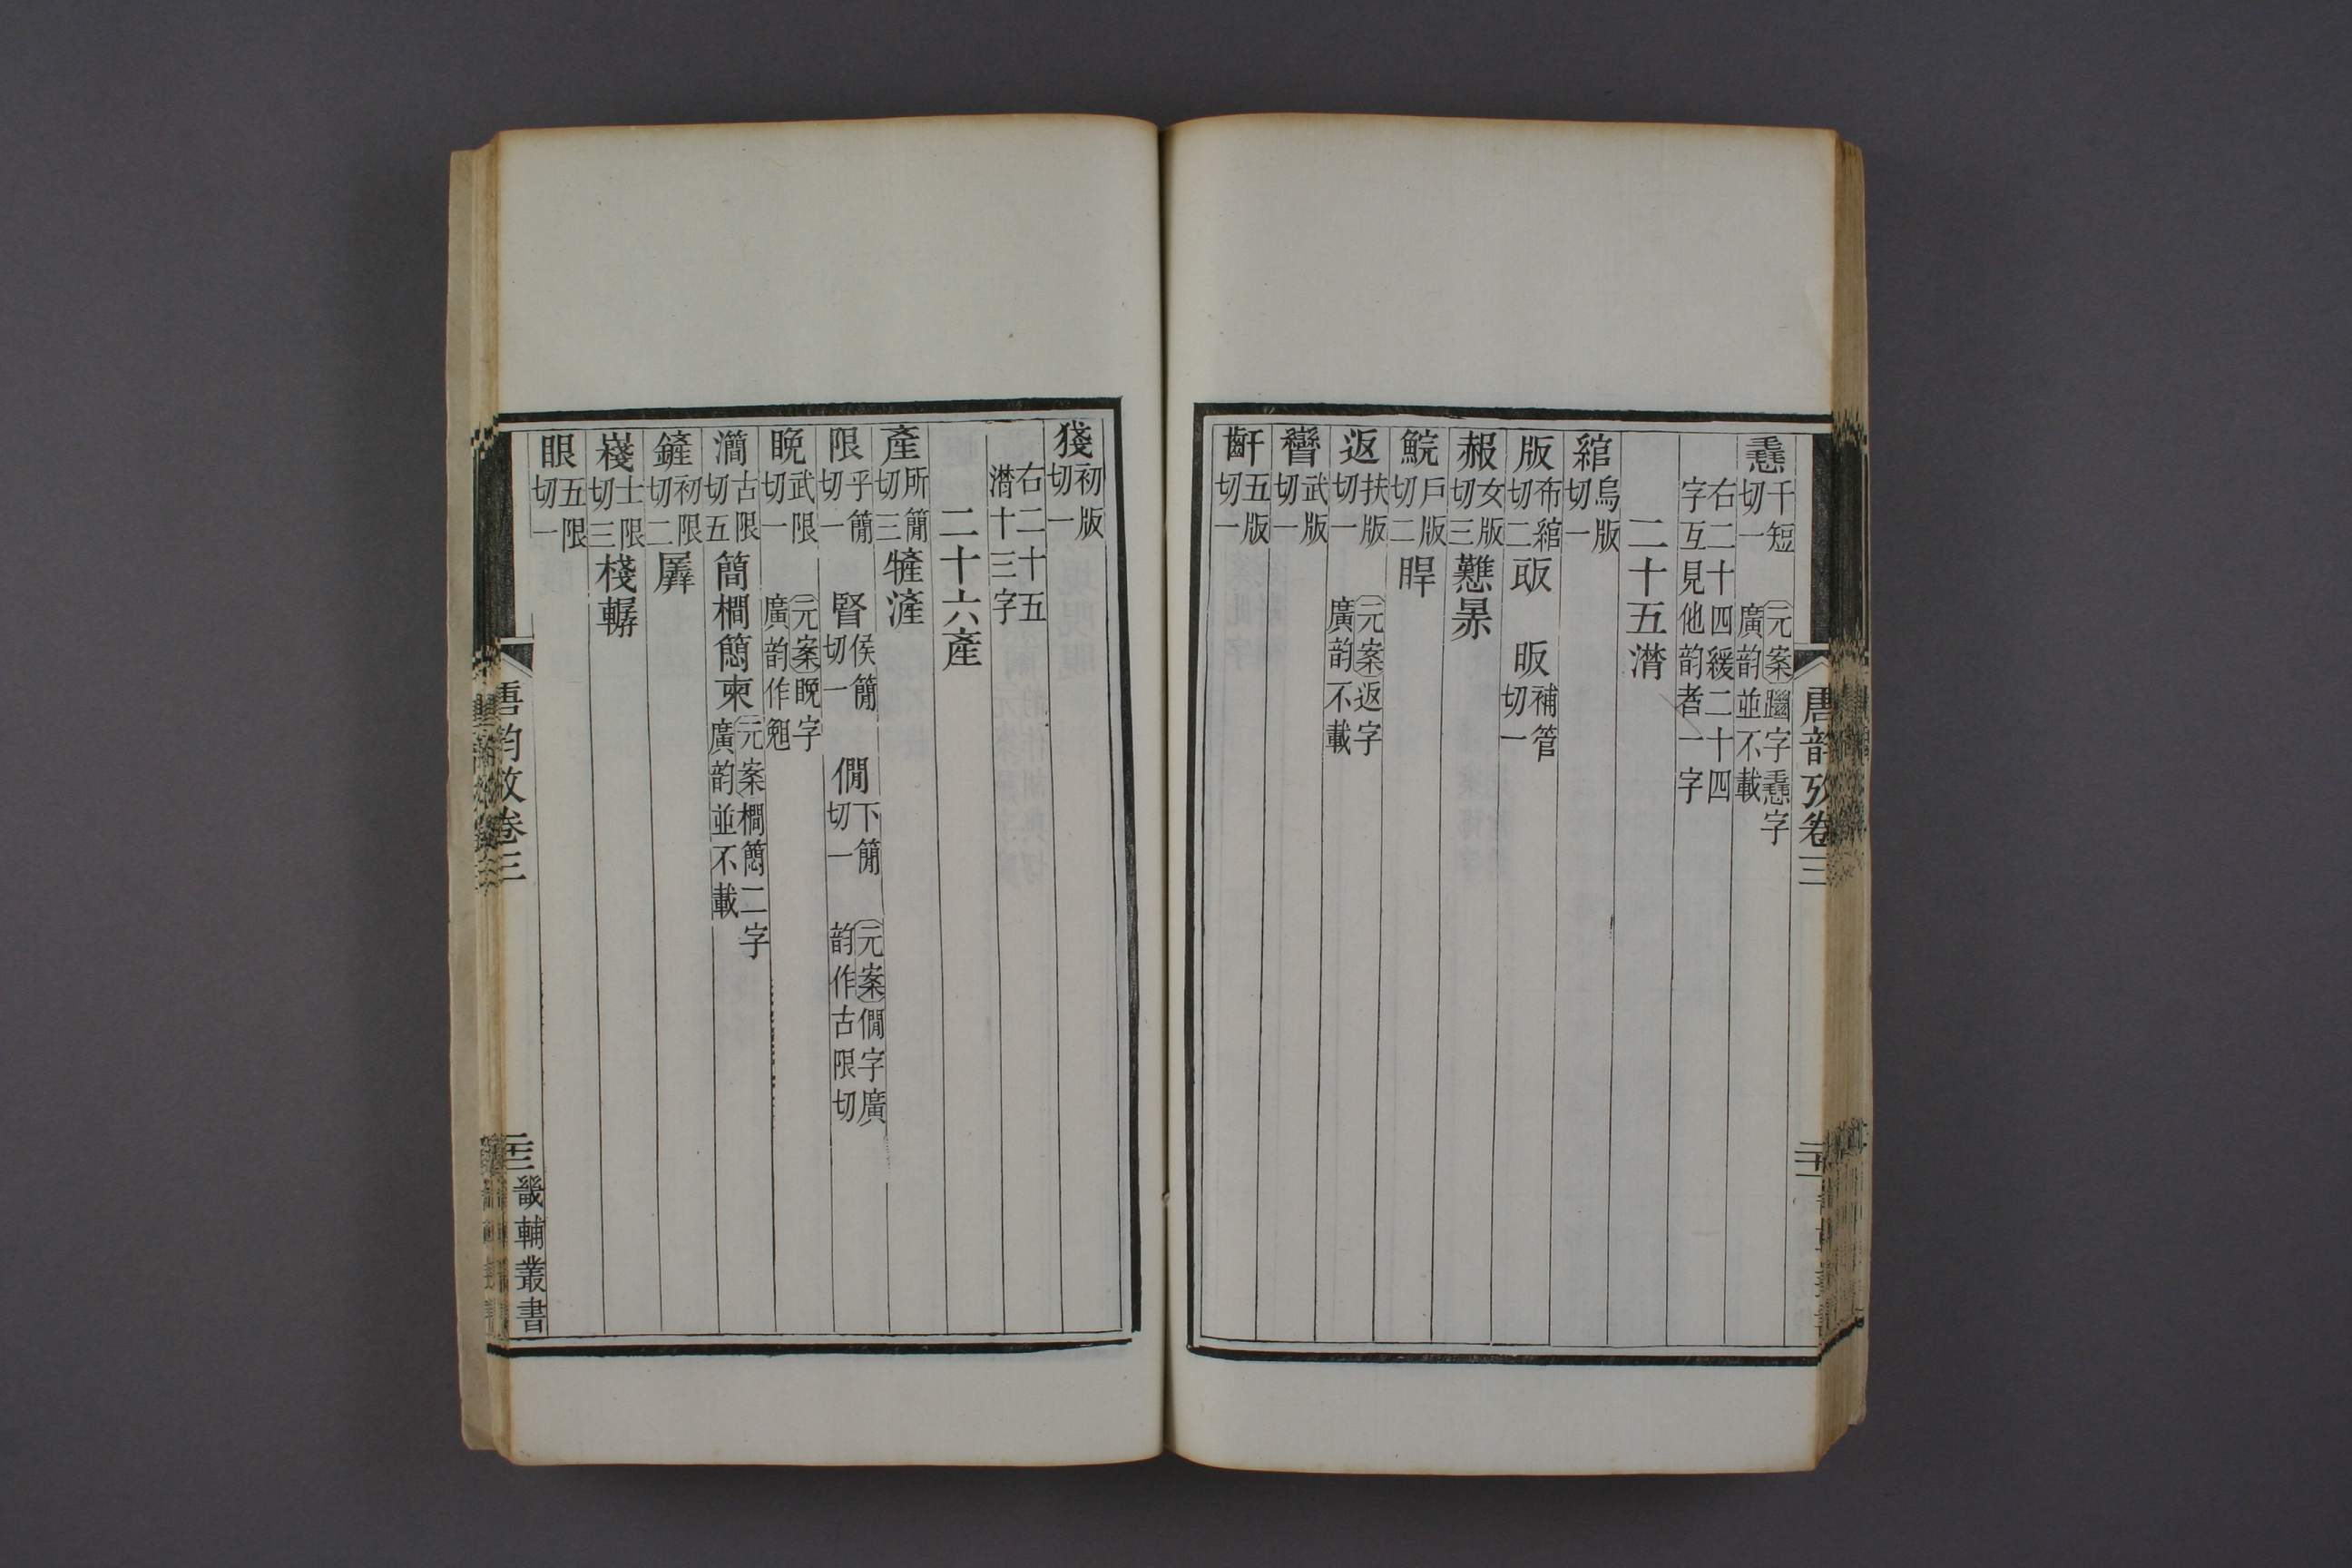 唐韵攷卷三
㥛千短切一 元案躖字㥛字廣韵並不載
右二十四緩二十四字互見他韵者一字
二十五潸
綰烏版切一
版布綰切二 瓪 昄補管切一
赧女版切三 戁㬎
鯇戶版切二 睅
返扶版切一 元案返字廣韵不載
矕武版切一
齗五版切一
㺊初版切一
右二十五潸十三字
二十六產
產所簡切三 㹌滻
限乎簡切一 䁂侯簡切一 僩下簡切一 元案僩字廣韵作古限切
晚武限切一 元案晚字廣韵作䰃
瀳古限切五 簡橺䉍柬 元案橺䉍二字廣韵並不載
鏟初限切二 羼
嶘士限切三 棧轏
眼五限切一
唐韵攷卷三
二十二
畿輔叢書